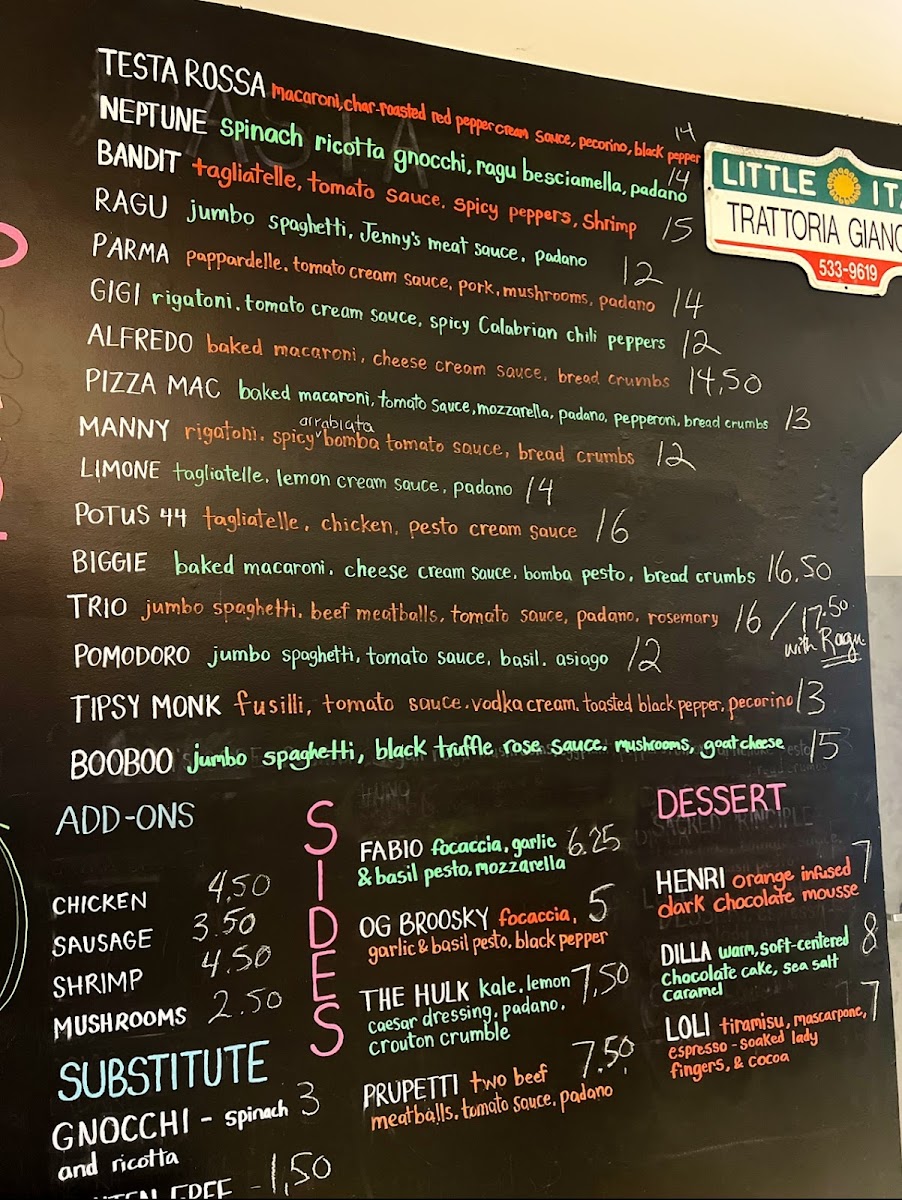 TESTA ROSSA macaroni, char-roasted red pepper cream sauce, pecorino, black pepper 14
NEPTUNE spinach ricotta gnocchi, ragu besciamella, padano 14
BANDIT tagliatelle, tomato sauce, spicy peppers, shrimp 15
RAGU jumbo spaghetti, Jenny's meat sauce, padano 12
PARMA pappardelle, tomato cream sauce, pork, mushrooms, padano 14
GIGI rigatoni, tomato cream sauce, spicy Calabrian chili peppers 12
ALFREDO baked macaroni, cheese cream sauce, bread crumbs 14,50
PIZZA MAC baked macaroni, tomato sauce, mozzarella, padano, pepperoni, bread crumbs 13
MANNY rigatoni, spicy arrabiata bomba tomato sauce, bread crumbs 12
LIMONE tagliatelle, lemon cream sauce, padano 14
POTUS 44 tagliatelle, chicken, pesto cream sauce 16
BIGGIE baked macaroni, cheese cream sauce, bomba pesto, bread crumbs 16.50
TRIO jumbo spaghetti, beef meatballs, tomato sauce, padano, rosemary 16 / 17.50
with Ragu
POMODORO jumbo spaghetti, tomato sauce, basil, asiago 12
TIPSY MONK fusilli, tomato sauce, vodka cream, toasted black pepper, pecorino 13
BOOBOO jumbo spaghetti, black truffle rose sauce, mushrooms, goat cheese 15
LITTLE
TRATTORIA
533-9619
ADD-ONS
CHICKEN 4,50
SAUSAGE 3.50
SHRIMP 4.50
MUSHROOMS 2.50
SUBSTITUTE
GNOCCHI - spinach 3
and ricotta
FREE - 1,50
SIDES
FABIO focaccia, garlic 6.25
& basil pesto, mozzarella
OG BROOSKY focaccia, 5
garlic & basil pesto, black pepper
THE HULK kale, lemon 7,50
caesar dressing, padano,
crouton crumble
PRUPETTI two beef 7.50
meatballs, tomato sauce, padano
DESSERT
HENRI orange infused 7
dark chocolate mousse
DILLA warm, soft-centered 8
chocolate cake, sea salt
caramel
LOLI tiramisu, mascarpone, 7
espresso-soaked lady
fingers, & cocoa